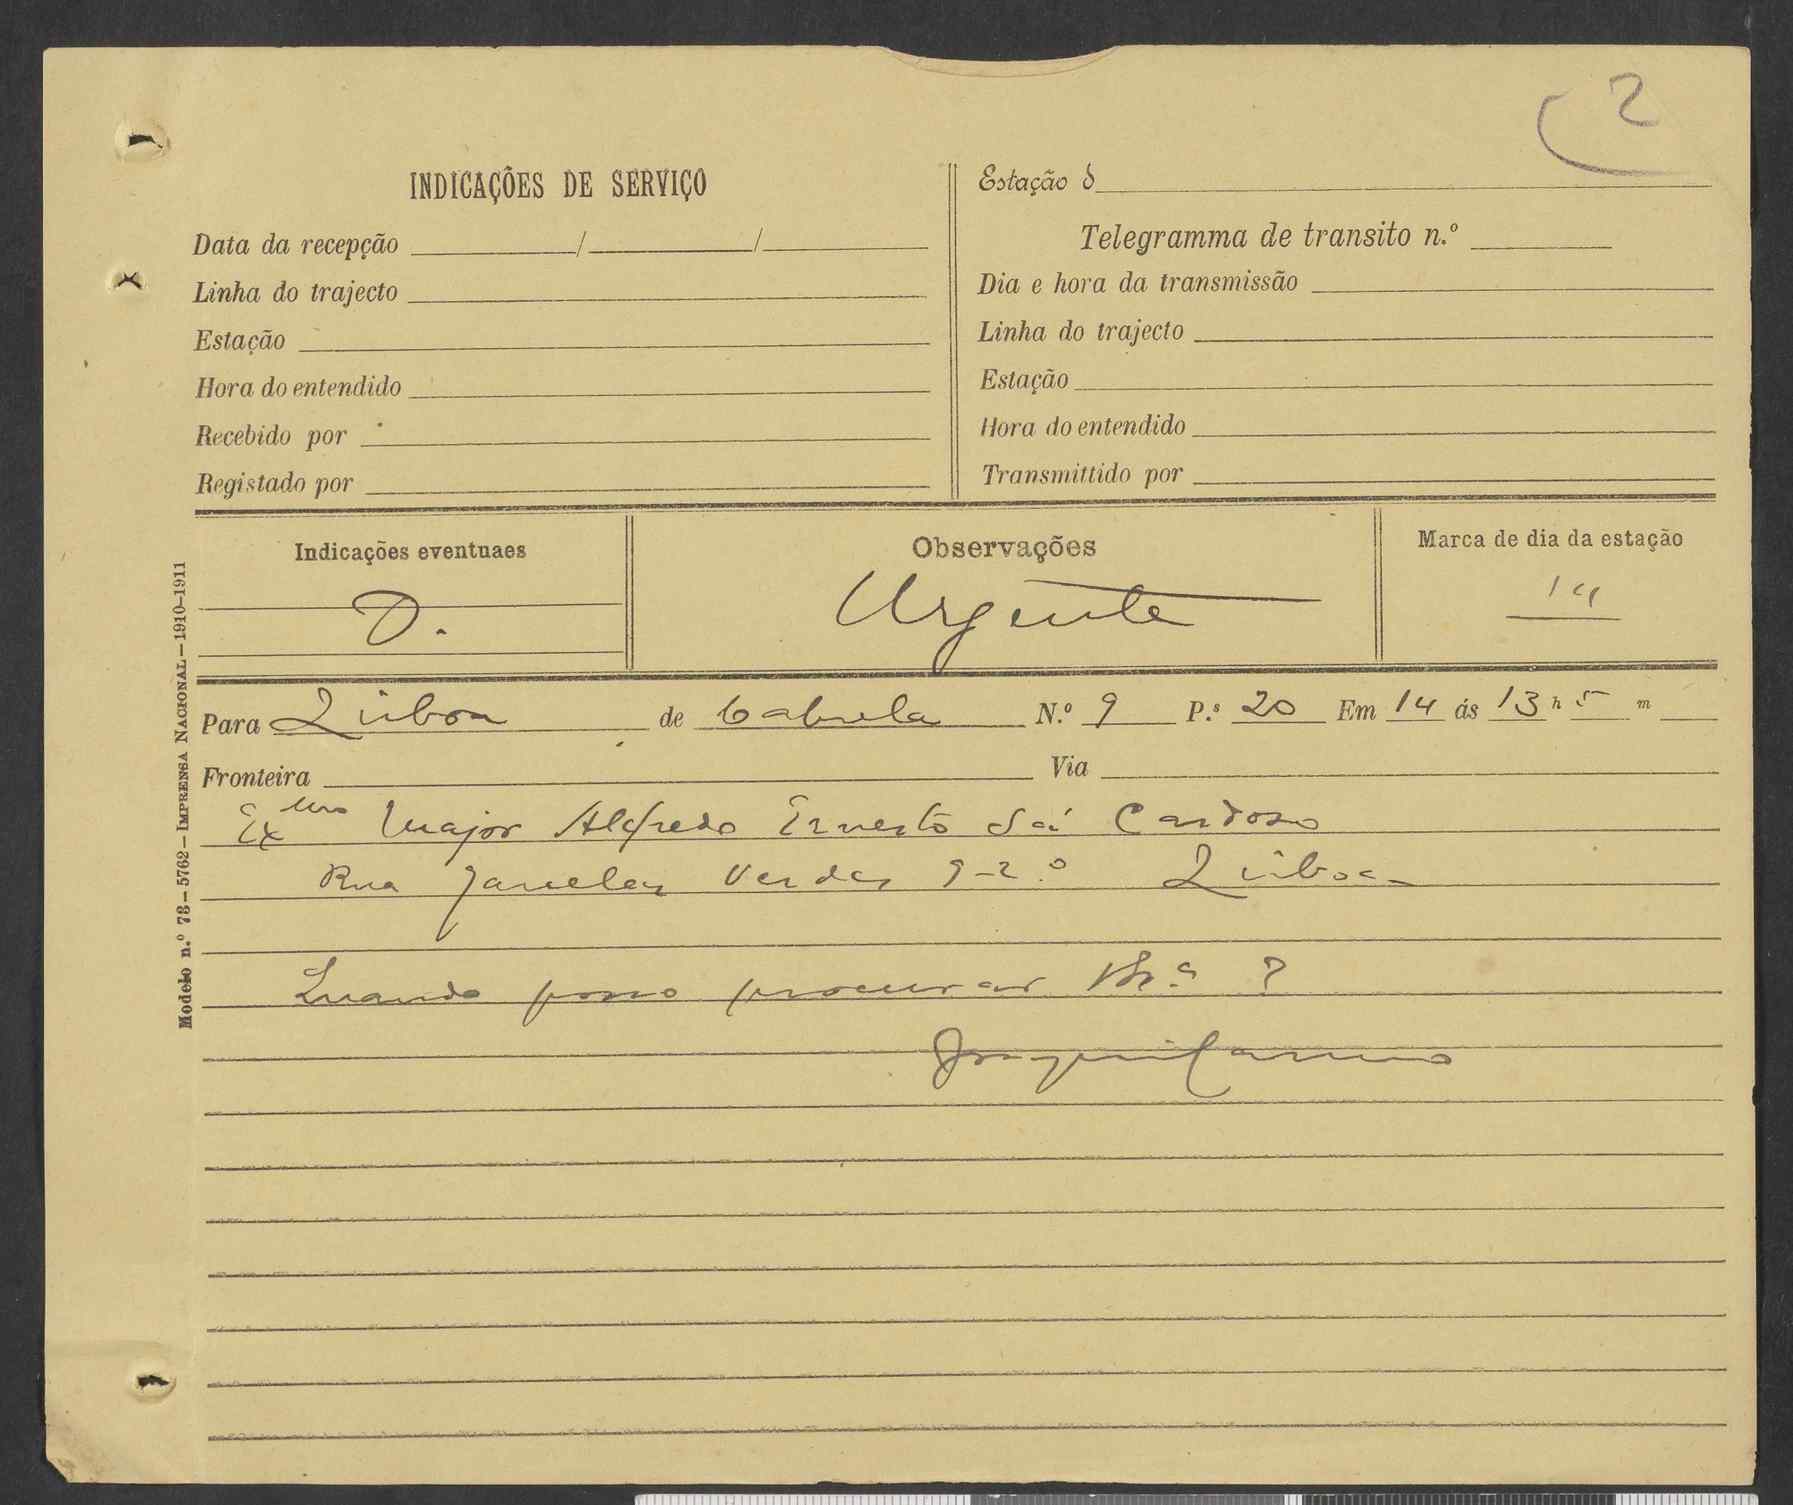 2
INDICAÇÕES DE SERVIÇO
Data da recepção / /
Linha do trajecto
Estação
Hora do entendido
Recebido por
Registado por
Estação d
Telegramma de transito n.º
Dia e hora da transmissão
Linha do trajecto
Estação
Hora do entendido
Transmittido por
Indicações eventuaes
D.
Observações
Urgente
Marca de dia da estação
14
Modelo n.º 73—5762—IMPRENSA NACIONAL—1910-1911
Para Lisboa de N.º 9 P.s 20 Em 14 ás 13 h 5 m
Fronteira Via
Exmo Major Alfredo Ernesto Sá Cardoso
Rua Janelas Verdes 9-2.º Lisboa
Quando posso procurar ?